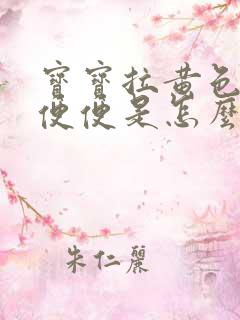 寶寶拉黃色
便便是怎麼
朱仁麗